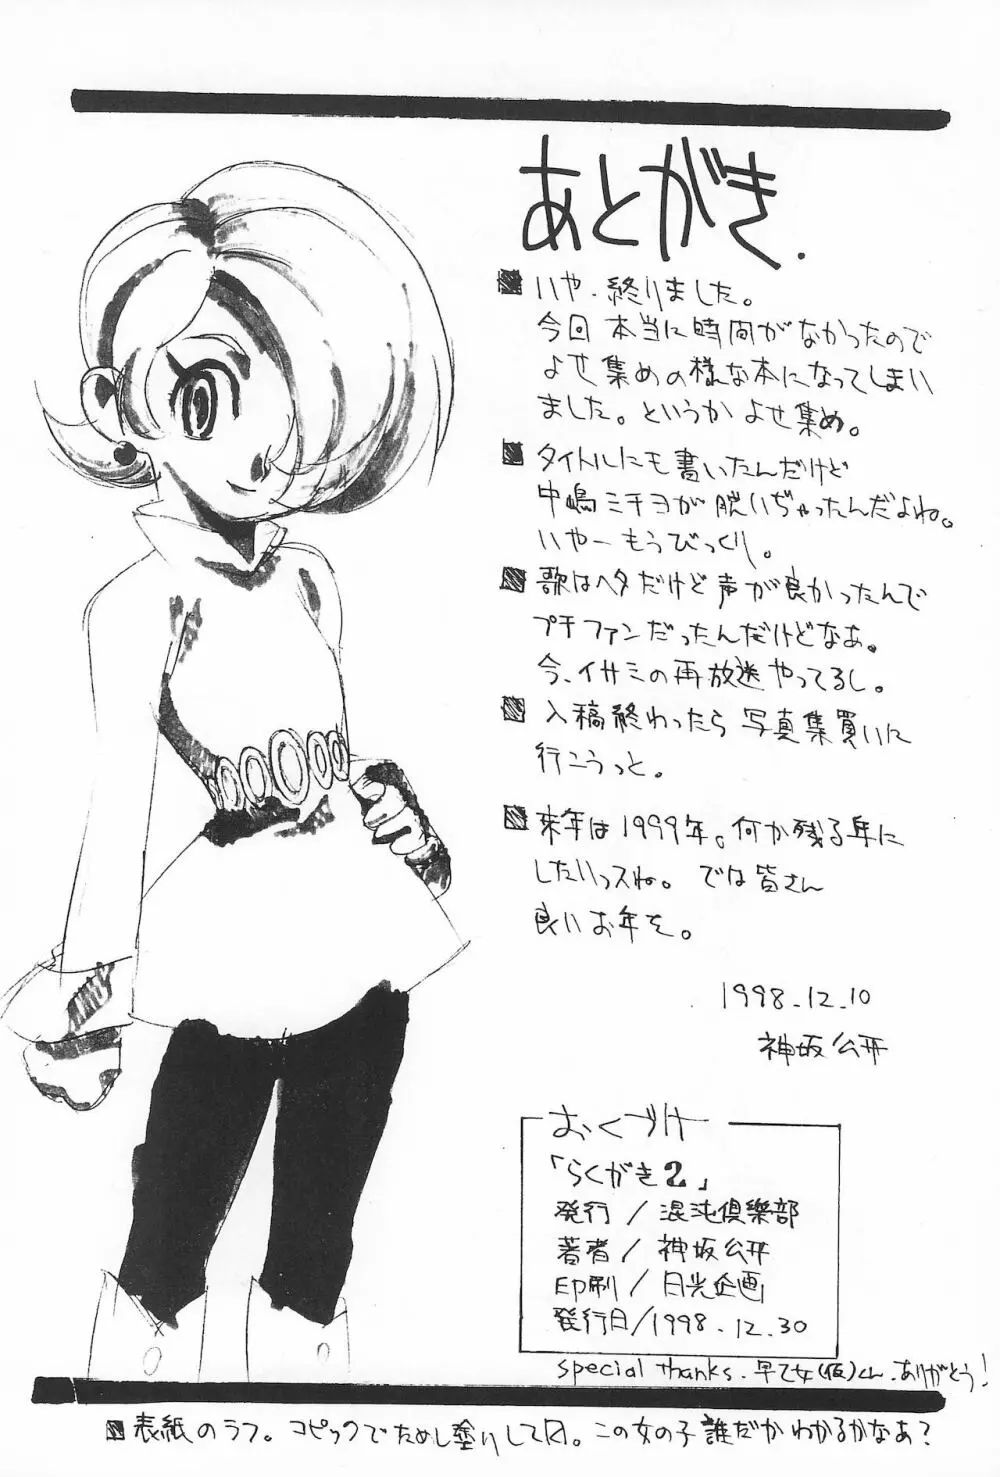 あとがき.
■いや、終りました。
今回本当に時間がなかったので
よせ集めの様な本になってしまい
ました。というかよせ集め。
■タイトルにも書いたんだけど
中嶋ミチヨが脱いぢゃったんだよね。
いやーもうびっくり。
■歌はヘタだけど声が良かったんで
プチファンだったんだけどなあ。
今、イサミの再放送やってるし。
■入稿終わったら写真集買いに
行こうっと。
■来年は1999年。何か残る年に
したいっスね。では皆さん
良いお年を。
1998.12.10
神坂公平
おくづけ
「らくがき2」
発行/混沌倶楽部
著者/神坂公平
印刷/日光企画
発行日/1998.12.30
special thanks.早乙女(仮)くん.ありがとう!
■表紙のラフ。コピックでためし塗りして〆。この女の子誰だかわかるかなあ?